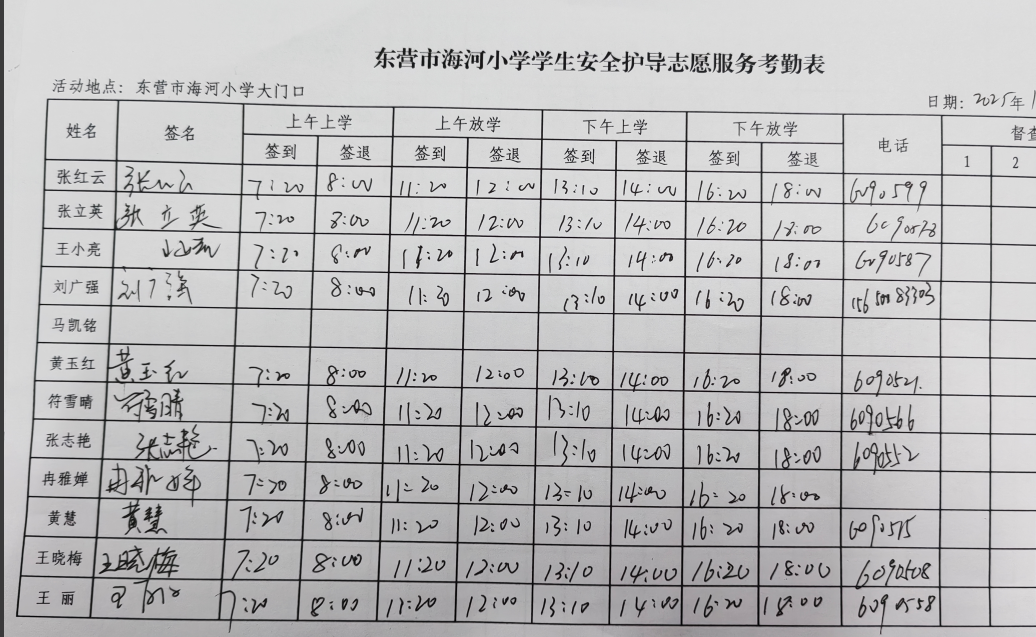 东营市海河小学学生安全护导志愿服务考勤表
活动地点：东营市海河小学大门口
日期：2025年1
姓名 签名 上午上学 上午放学 下午上学 下午放学 电话 督查
签到 签退 签到 签退 签到 签退 签到 签退 1 2
张红云 张红云 7:20 8:00 11:20 12:00 13:10 14:00 16:20 18:00 6090599
张立英 张立英 7:20 8:00 11:20 12:00 13:10 14:00 16:20 18:00 6090528
王小亮 7:20 8:00 11:20 12:00 13:10 14:00 16:20 18:00 6090587
刘广强 刘广强 7:20 8:00 11:20 12:00 13:10 14:00 16:20 18:00 15650083303
马凯铭
黄玉红 黄玉红 7:20 8:00 11:20 12:00 13:10 14:00 16:20 18:00 6090521.
符雪晴 符雪晴 7:20 8:00 11:20 12:00 13:10 14:00 16:20 18:00 6090566
张志艳 张志艳 7:20 8:00 11:20 12:00 13:10 14:00 16:20 18:00 6090552
冉雅婵 冉雅婵 7:20 8:00 11:20 12:00 13:10 14:00 16:20 18:00
黄慧 黄慧 7:20 8:00 11:20 12:00 13:10 14:00 16:20 18:00 6090515
王晓梅 王晓梅 7:20 8:00 11:20 12:00 13:10 14:00 16:20 18:00 6090508
王丽 王丽 7:20 8:00 11:20 12:00 13:10 14:00 16:20 18:00 6090558